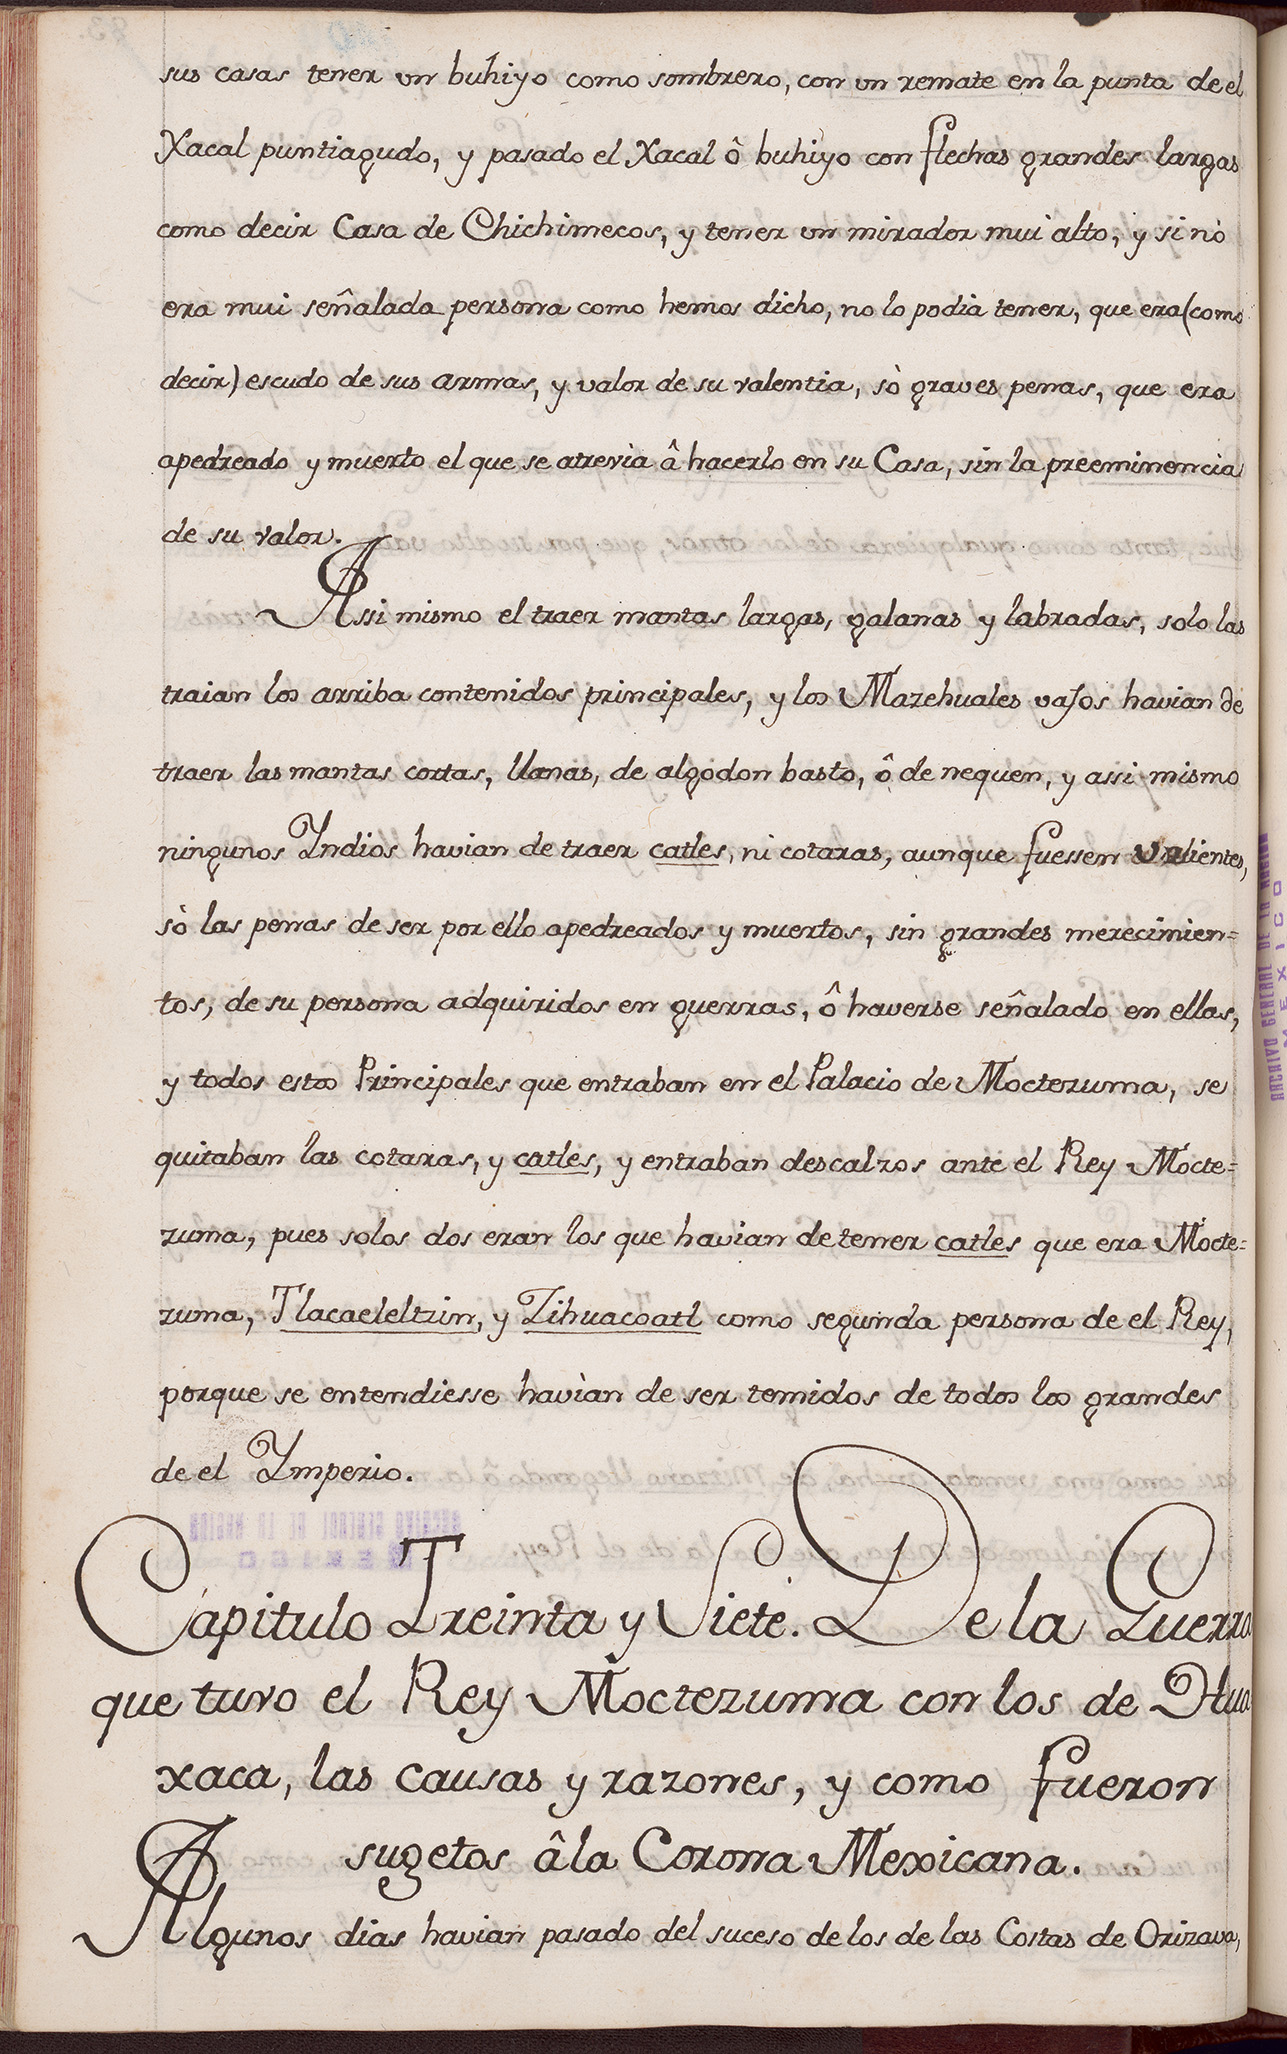 sus casas tener un buhiyo como sombrero, con un remate en la punta de el
Xacal puntiagudo, y pasado el Xacal ô buhiyo con flechas grandes largas
como decir Casa de Chichimecos, y tener un mirador mui alto, y si nò
era mui señalada persona como hemos dicho, no lo podia tener, que era (como
decir) escudo de sus armas, y valor de su valentia, sò graves penas, que era
apedreado y muerto el que se atrevia â hacerlo en su Casa, sin la preeminencia
de su valor.
Assi mismo el traer mantas largas, galanas y labradas, solo las
traian los arriba contenidos principales, y los Mazehuales vasos havian de
traer las mantas cortas, llanas, de algodon basto, ô de nequen, y assi mismo
ningunos Yndios havian de traer catles, ni cotaras, aunque fuessen valientes,
sò las penas de ser por ello apedreados y muertos, sin grandes merecimien=
tos, de su persona adquiridos en guerras, ô haverse señalado en ellas,
y todos estos Principales que entraban en el Palacio de Moctezuma, se
quitaban las cotaras, y catles, y entraban descalzos ante el Rey Mocte=
zuma, pues solos dos eran los que havian de tener catles que era Mocte=
zuma, Tlacaeleltzin, y Zihuacoatl como segunda persona de el Rey,
porque se entendiesse havian de ser temidos de todos los grandes
de el Ymperio.
Capitulo Treinta y Siete. De la Guerra
que tuvo el Rey Moctezuma con los de Hua
xaca, las causas y razones, y como fueron
sugetos â la Corona Mexicana.
Algunos dias havian pasado del suceso de los de las Costas de Orizava,
ARCHIVO GENERAL DE LA NACION
MEXICO